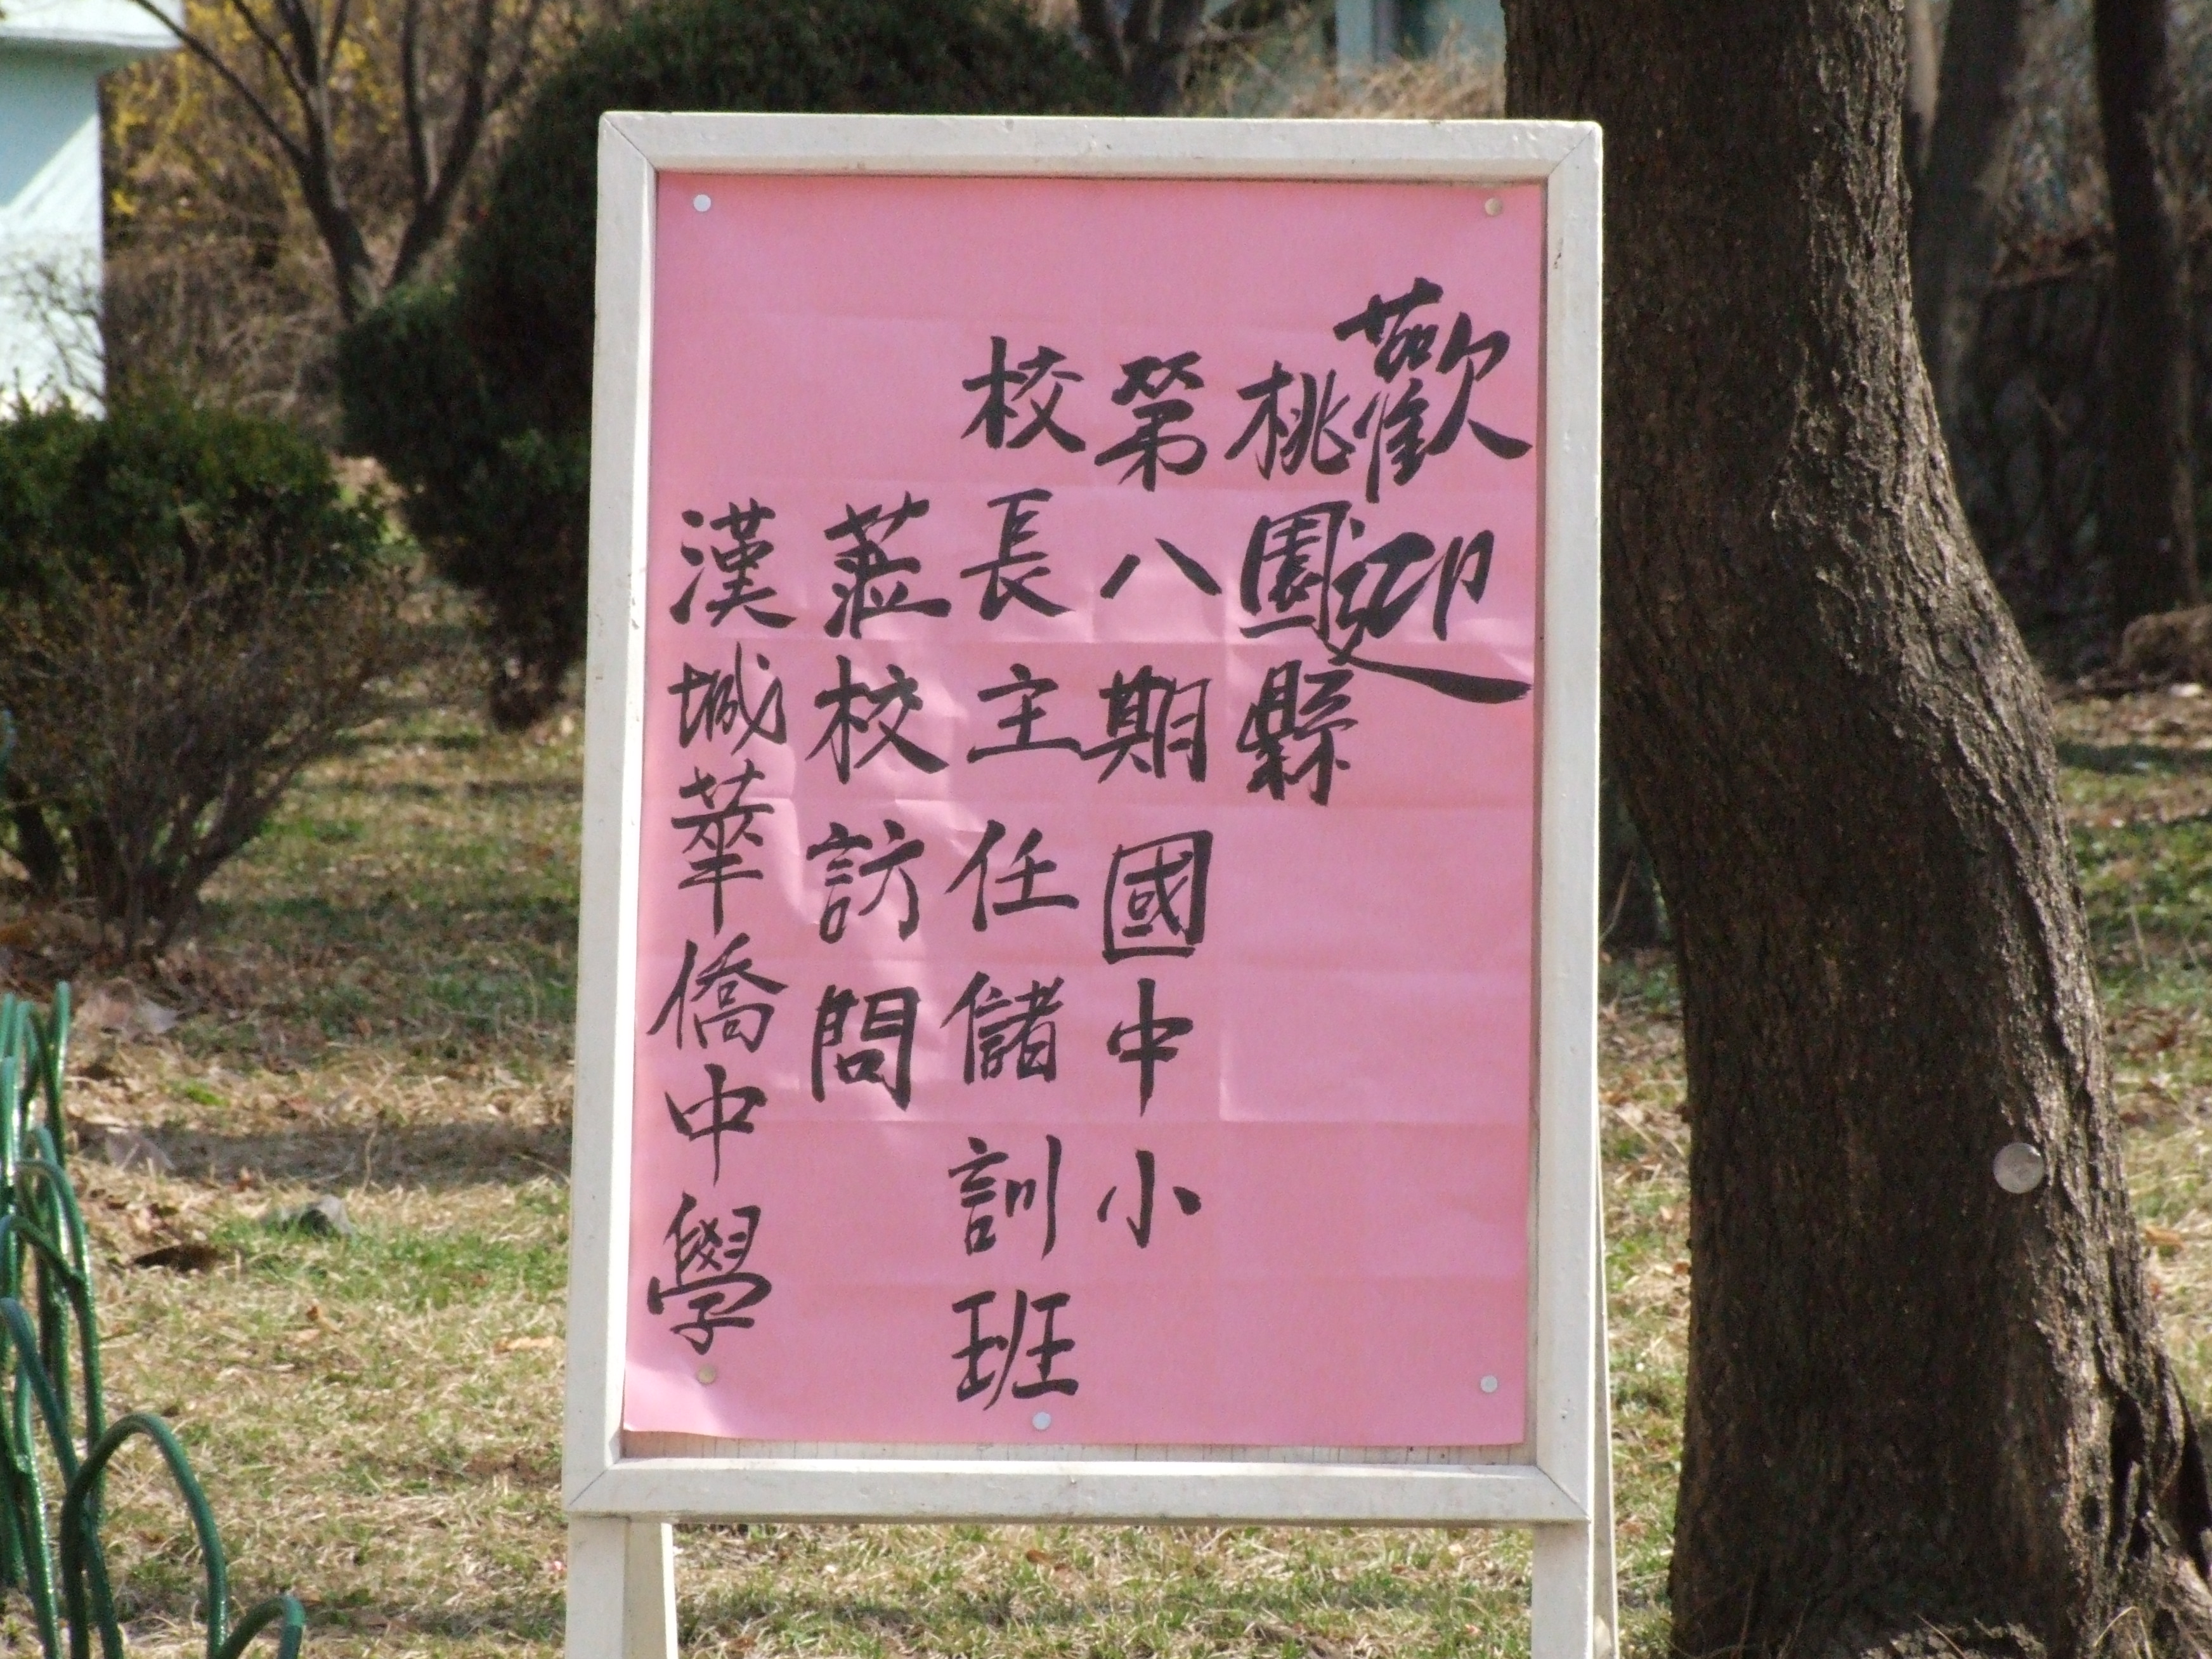 歡迎
桃園縣
第八期國中小
校長主任儲訓班
蒞校訪問
漢城華僑中學